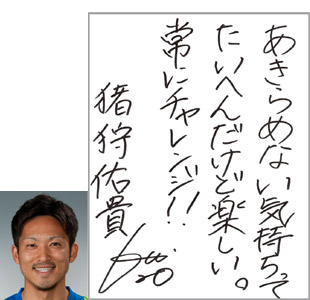 あきらめない気持ちって
たいへんだけど楽しい。
常にチャレンジ!!
猪狩佑貴
20